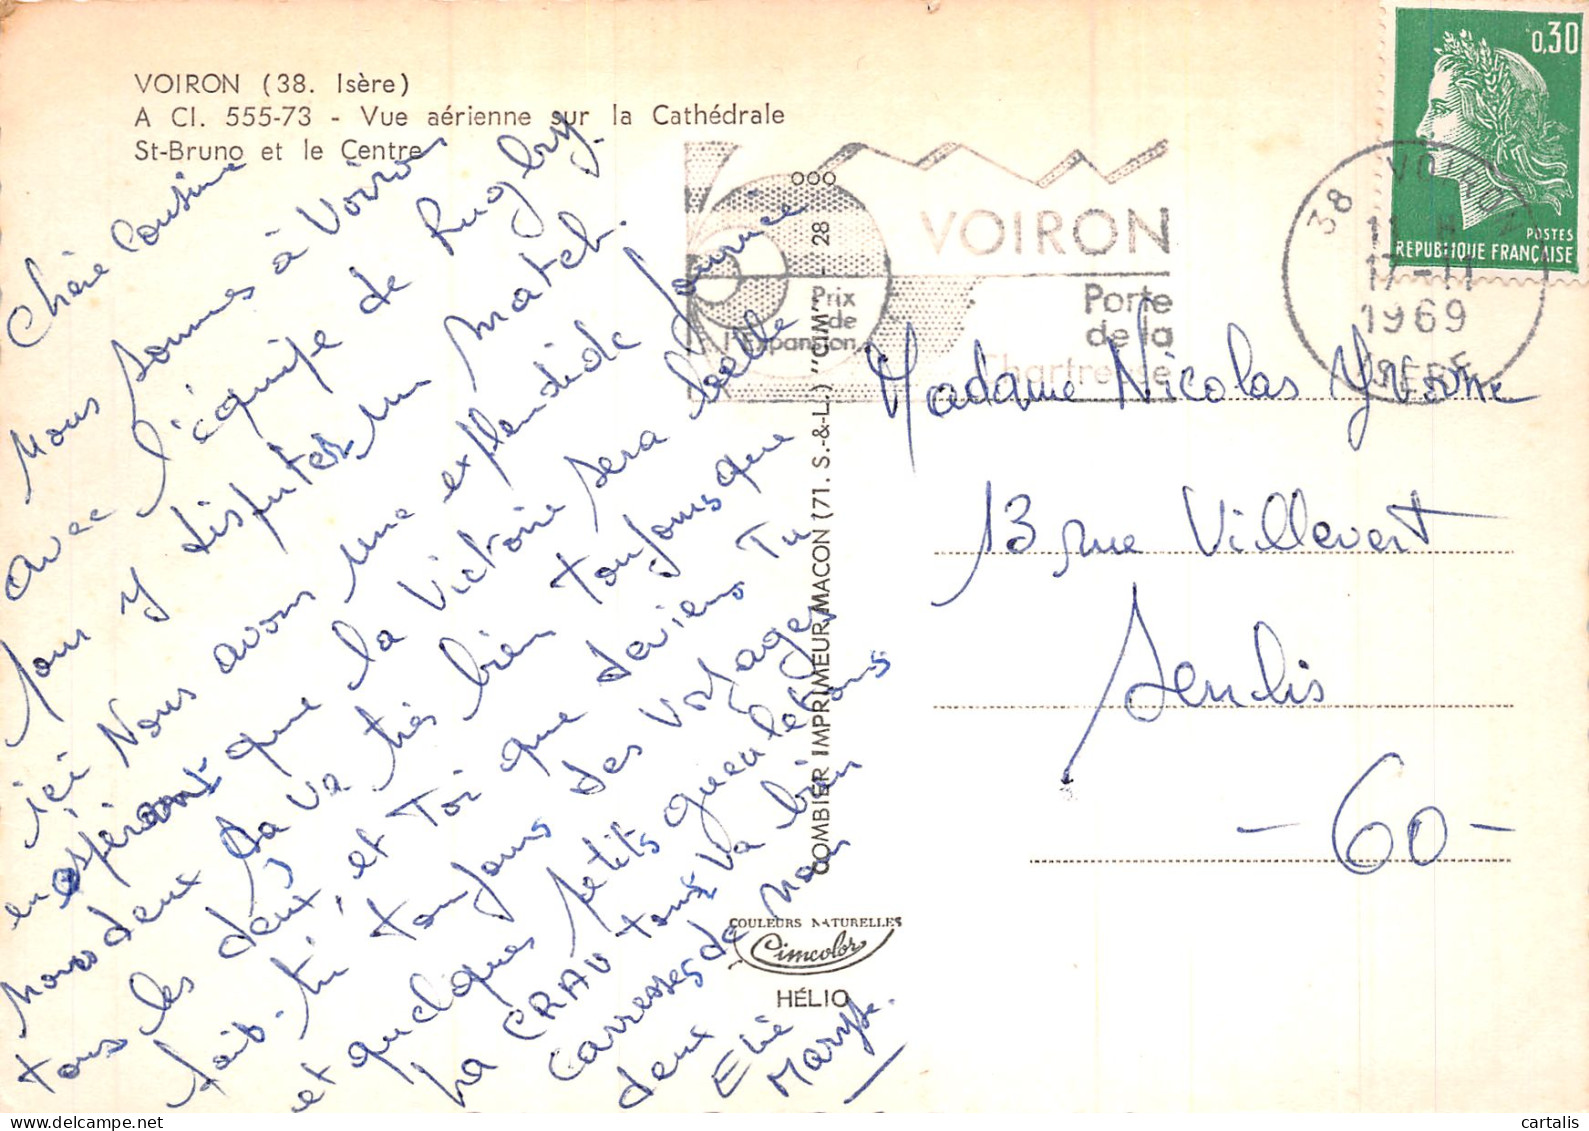 VOIRON (38. Isère)
A Cl. 555-73 - Vue aérienne sur la Cathédrale
St-Bruno et le Centre
Chère Cousine
Nous sommes à Voiron
avec l'équipe de Rugby
pour y disputer un match.
ici Nous avons une explendide Journée
en espérant que la Victoire sera belle
Nous deux sa va très bien toujours que
tous les deux, et Toi que deviens Tu
fait-tu toujours des voyages
et quelques petits gueuletons
La CRAU tous va bien
Carresses de nous
deux
Elie
Maryse.
COMBIER IMPRIMEUR MACON (71. S.-&-L.) "CIM" - 28
COULEURS NATURELLES
Cimcolor
HÉLIO
000
Prix
de
l'Expansion
VOIRON
Porte
de la
Chartreuse
38 VOIRON
11 H
17-11
1969
ISERE
0,30
POSTES
REPUBLIQUE FRANÇAISE
Madame Nicolas Yvonne
13 rue Villevert
Senlis
- 60 -
cartalis